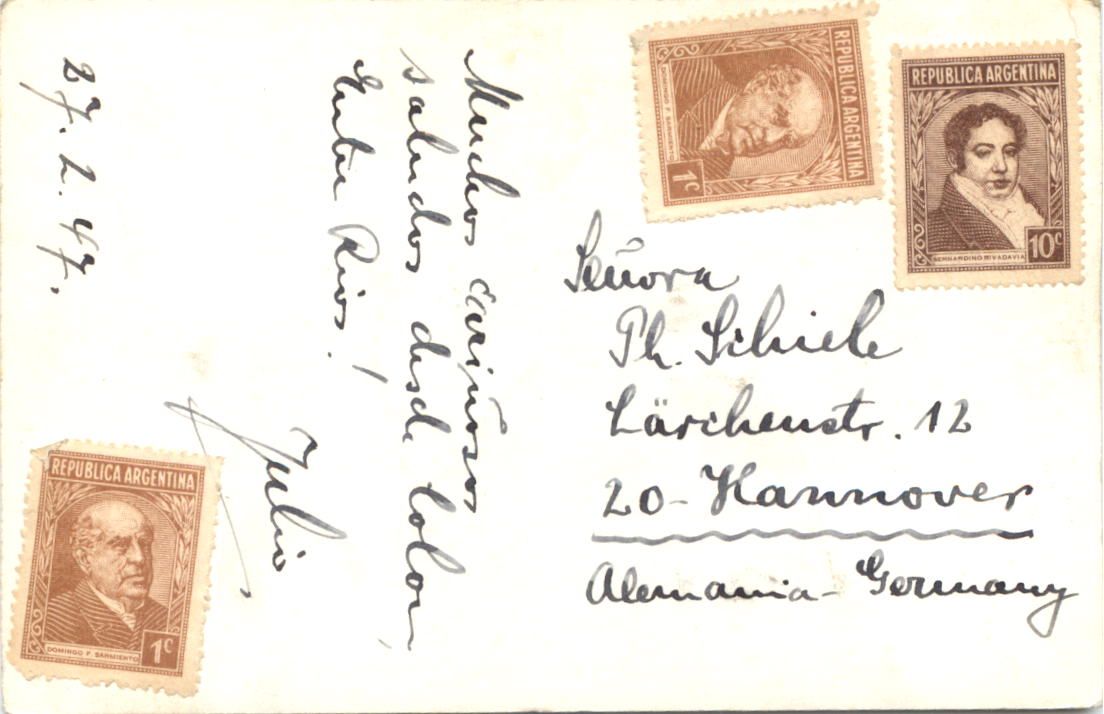 27.2.47.
Muchos cariñosos
saludos desde Colon,
Entre Rios!
Julio
REPUBLICA ARGENTINA
DOMINGO F. SARMIENTO
1c
REPUBLICA ARGENTINA
BERNARDINO RIVADAVIA
10c
Señora
Ph. Schiele
Lärchenstr. 12
20-Hannover
Alemania-Germany
REPUBLICA ARGENTINA
DOMINGO F. SARMIENTO
1c